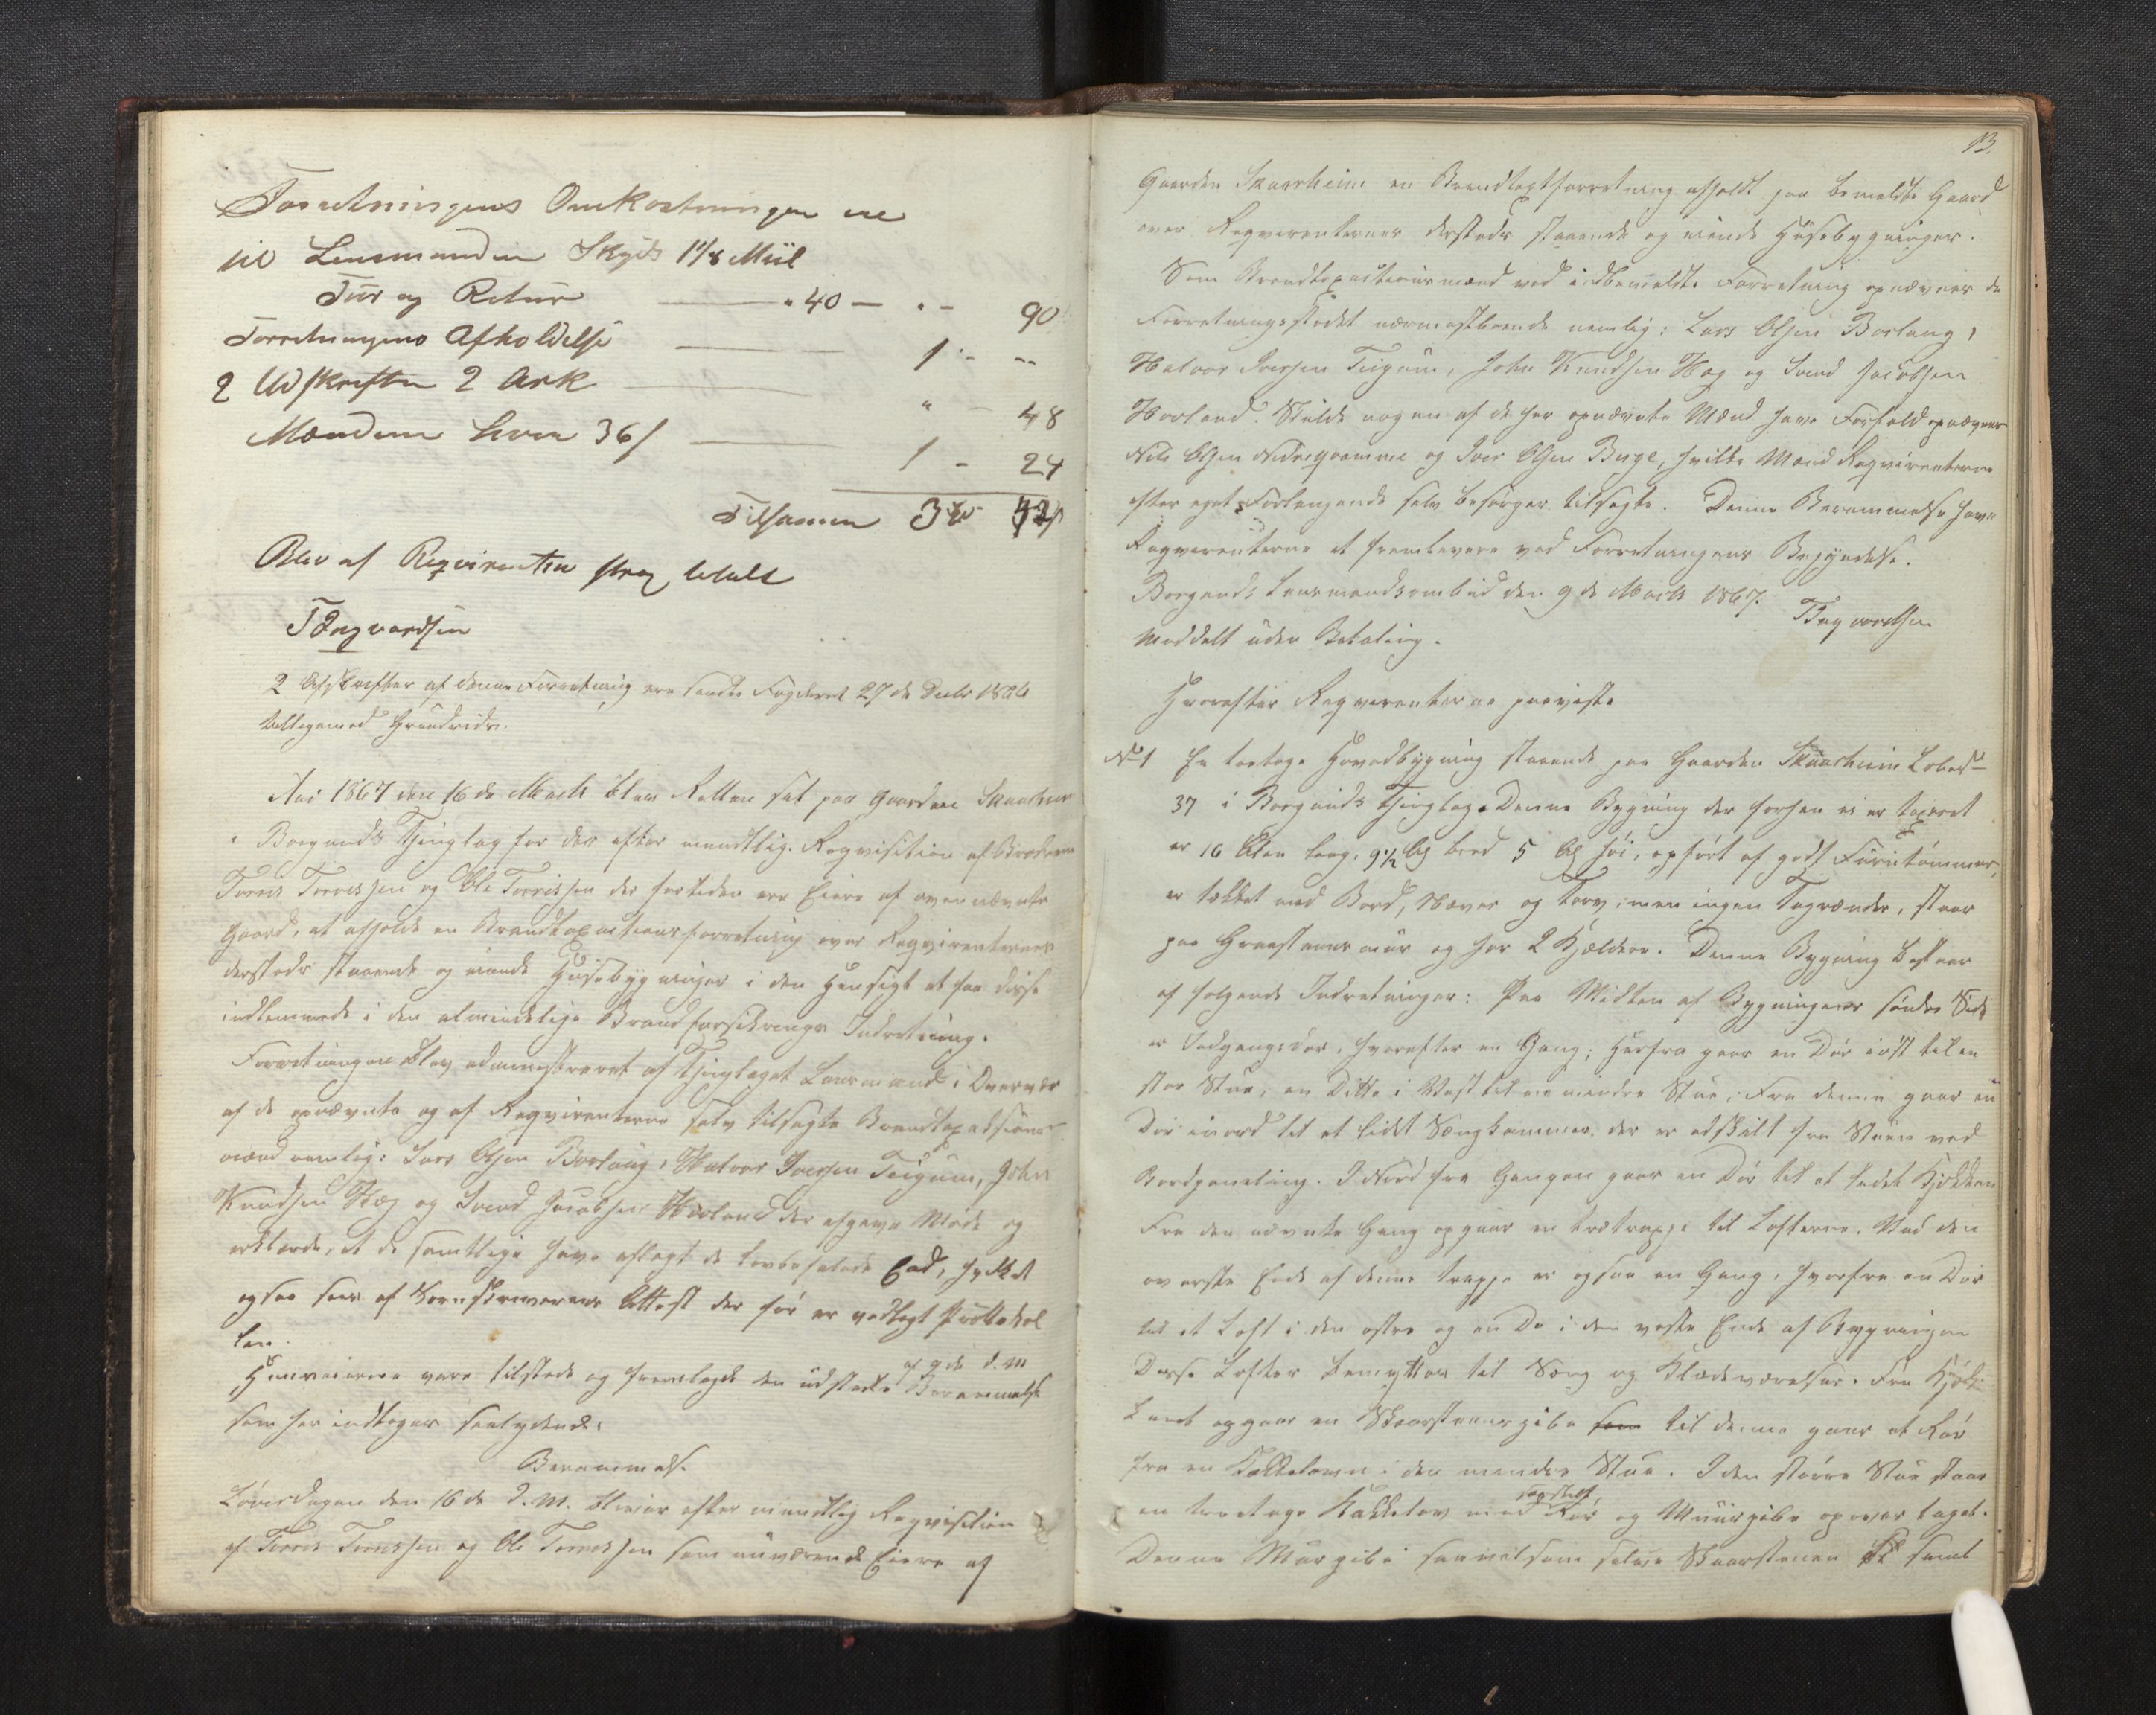 Forretningens Omkostninger ere
til Lensmanden Skyds 1 1/8 Miil
Tuur og Retur " 40 — " - 90
Forretningens Afholdelse 1 - "-
2 Udskrifter 2 Ark " - 48
Mændene hver 36/ 1 - 24
Tilsammen 3 42
Blev af Reqvirenten strax betalt
T Ingvardsen
2 Afskrifter af denne Forretning ere sendte Fogderiet 27de Decbr 1866
tilligemed Grundrids.
Aar 1867 den 16de Marts blev Retten sat paa Gaarden Skaarheim
i Borgunds Thinglag for der efter mundtlig Reqvisition af Brødrene
Torris Torrissen og Ole Torrissen der for tiden ere Eiere af ovennævnte
Gaard, at afholde en Brandtaxationsforretning over Reqvirenternes
dersteds staaende og eiende Huusebygninger i den Hensigt at faa disse
indlemmede i den almindelige Brandforsikrings Indretning.
Forretningen blev administreret af Thinglagets Lensmand i Overvær
af de opnævnte og af Reqvirenterne selv tilsagte Brandtaxations
mænd nemlig: Lars Olsen Borlaug, Halvor Iversen Teigum, John
Knudsen Hæg og Svend Jacobsen Hovland der afgave Møde og
erklærede, at de samtlige have aflagt de lovbefalede Eed, hvilket
ogsaa sees af Sorenskriverens Attest der før er vedlagt Protokol
len.
Huuseierne vare tilstede og fremlagde den udstedte af 9de d. M. Berammelse
som her indtages saalydende:
Berammelse
Løverdagen den 16de d. M. bliver efter mundtlig Reqvisition
af Torris Torrissen og Ole Torrissen som nuværende Eiere af
13.
Gaarden Skaarheim en Brandtaxtforretning afholdt paa bemeldte Gaard
over Reqvirenternes dersteds staaende og eiende Huusebygninger.
Som Brandtaxationsmænd ved indbemeldte Forretning opnævnes de
Forretningsstedet nærmestboende nemlig: Lars Olsen Borlaug,
Halvor Iversen Teigum, John Knudsen Hæg og Svend Jacobsen
Hovland. Skulde nogen af de her opnævnte Mænd have Forfald opnævnes
Nils Olsen Nedregramme og Iver Olsen Buge, hvilke Mænd Reqvirenterne
efter eget Forlangende selv besørger tilsagte. Denne Berammelse have
Reqvirenterne at fremlevere ved Forretningens Begyndelse.
Borgunds Lensmandsombud den 9de Marts 1867.
T Ingvardsen
Meddelt uden Betaling.
Hvorefter Reqvirenterne paaviste
No 1 En toetages Hovedbygning staaende paa Gaarden Skaarheim Løbe No
37 i Borgunds Thinglag. Denne Bygning der forhen ei er taxeret
er 16 Alen lang, 9 1/2 Al bred 5 Al høi, opført af godt Furutømmer,
er tækket med Bord, Næver og Torv, men ingen Tagrender, staar
paa Graasteens muur og har 2 Kjældere. Denne Bygning bestaar
af følgende Indretninger: Paa Midten af Bygningens søndre Side
er Indgangsdør, hvorefter en Gang; Herfra gaar en Dør i øst til en
stor Stue, en Ditto i Vest til en mindre Stue, Fra denne gaar en
Dør i nord til et lidet Sængkammer, der er adskilt fra Stuen ved
Bordpaneling. I Nord fra Gangen gaar en Dør til et lidet Kjøkken
Fra den nævnte Gang opgaar en trætrappe til Lofterne. Ved den
øverste Ende af denne trappe er ogsaa en Gang, hvorfra en Dør
til et Loft i den østre og en Do i den vestre Ende af Bygningen
Disse Lofter benyttes til Sæng og Klædeværelser. Fra Kjøk
kenet opgaar en Skorsteenspibe som til denne gaar et Rør
fra en Kakkelovn i den mindre Stue. I den større Stue staar
en treetages Kakkelovn med særskilt Rør og Muurpibe op over taget.
Denne Murpibe saavelsom selve Skorstenen samt